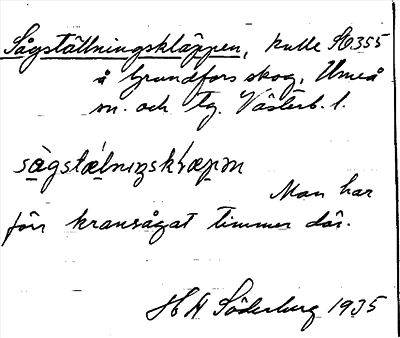 Sågställningskläppen, kulle St 355
å Grundfors skog, Umeå
sn. och tg. Västerb. l.
sàgstǽlnıŋskḷæpm
Man har
förr kransågat timmer där.
H A Söderberg 1935